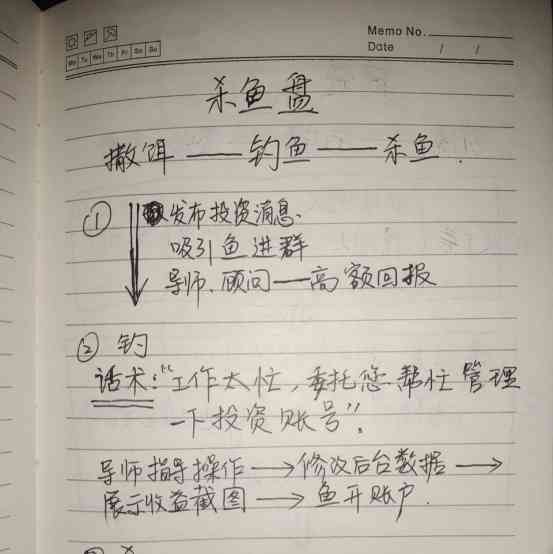 Memo No.
Date / /
Mo Tu We Th Fr Sa Su
杀鱼盘
撒饵——钓鱼——杀鱼.
① 发布投资消息.
吸引鱼进群
导师、顾问——高额回报
② 钓
话术:“工作太忙,委托您帮忙管理
一下投资账号”.
导师指导操作→修改后台数据→
展示收益截图→鱼开账户.